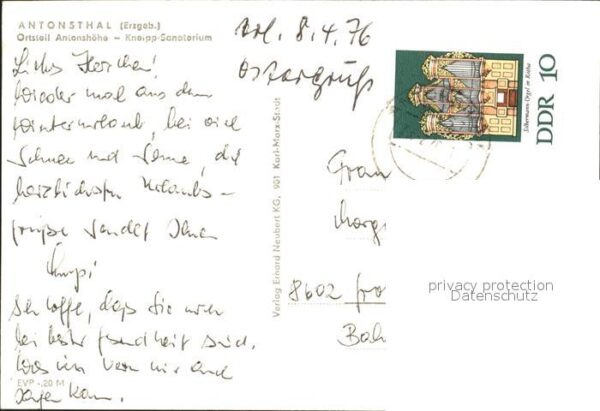 ANTONSTHAL (Erzgeb.)
Ortsteil Antonshöhe – Kneipp-Sanatorium
Liebes Herrchen!
Wieder mal aus dem
Winterurlaub, bei viel
Schnee und Sonne, die
herzlichsten Urlaubs-
grüße sendet Ihnen
Ich hoffe, daß Sie noch
bei bester Gesundheit sind.
Was ich von mir auch
sagen kann.
EVP -,20 M
Verlag Erhard Neubert KG, 901 Karl-Marx-Stadt
8.4.76
Ostergruß
Silbermann-Orgel in Rötha
DDR 10
8602
privacy protection
Datenschutz